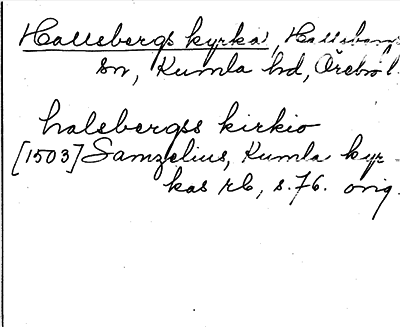 Hallsbergs kyrka, Hallsberg
sn, Kumla hd, Örebro l.
halsbergss kirkio
[1503] Samzelius, Kumla kyr
kas rb, s. 76. orig.